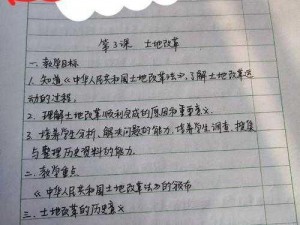 第3课 土地改革
一、教学目标
1. 知道《中华人民共和国土地改革法》,了解土地改革运
动的过程。
2. 理解土地改革顺利完成的原因和重要意义。
3. 培养学生分析、解决问题的能力,培养学生调查、搜集
与整理历史资料的能力。
二、教学重点
《中华人民共和国土地改革法》的颁布
三、土地改革的历史意义